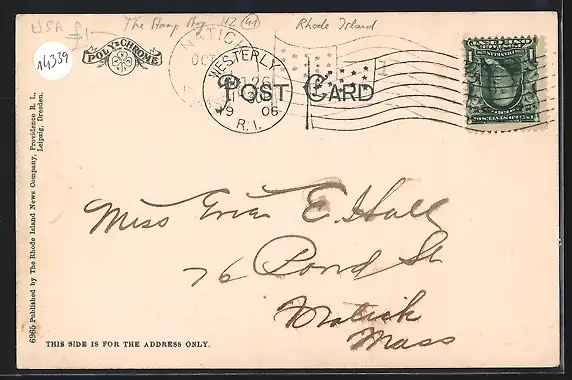 USA
£1
The Stamp Mag. N2 (41)
Rhode Island
14339
POLY-CHROME
NATICK
OCT
WESTERLY
26
19 06
R. I.
POST CARD
1
6965 Published by The Rhode Island News Company, Providence R. I.,
Leipzig, Dresden.
Miss Erier E. Hall
76 Pond St
Natick
Mass
THIS SIDE IS FOR THE ADDRESS ONLY.